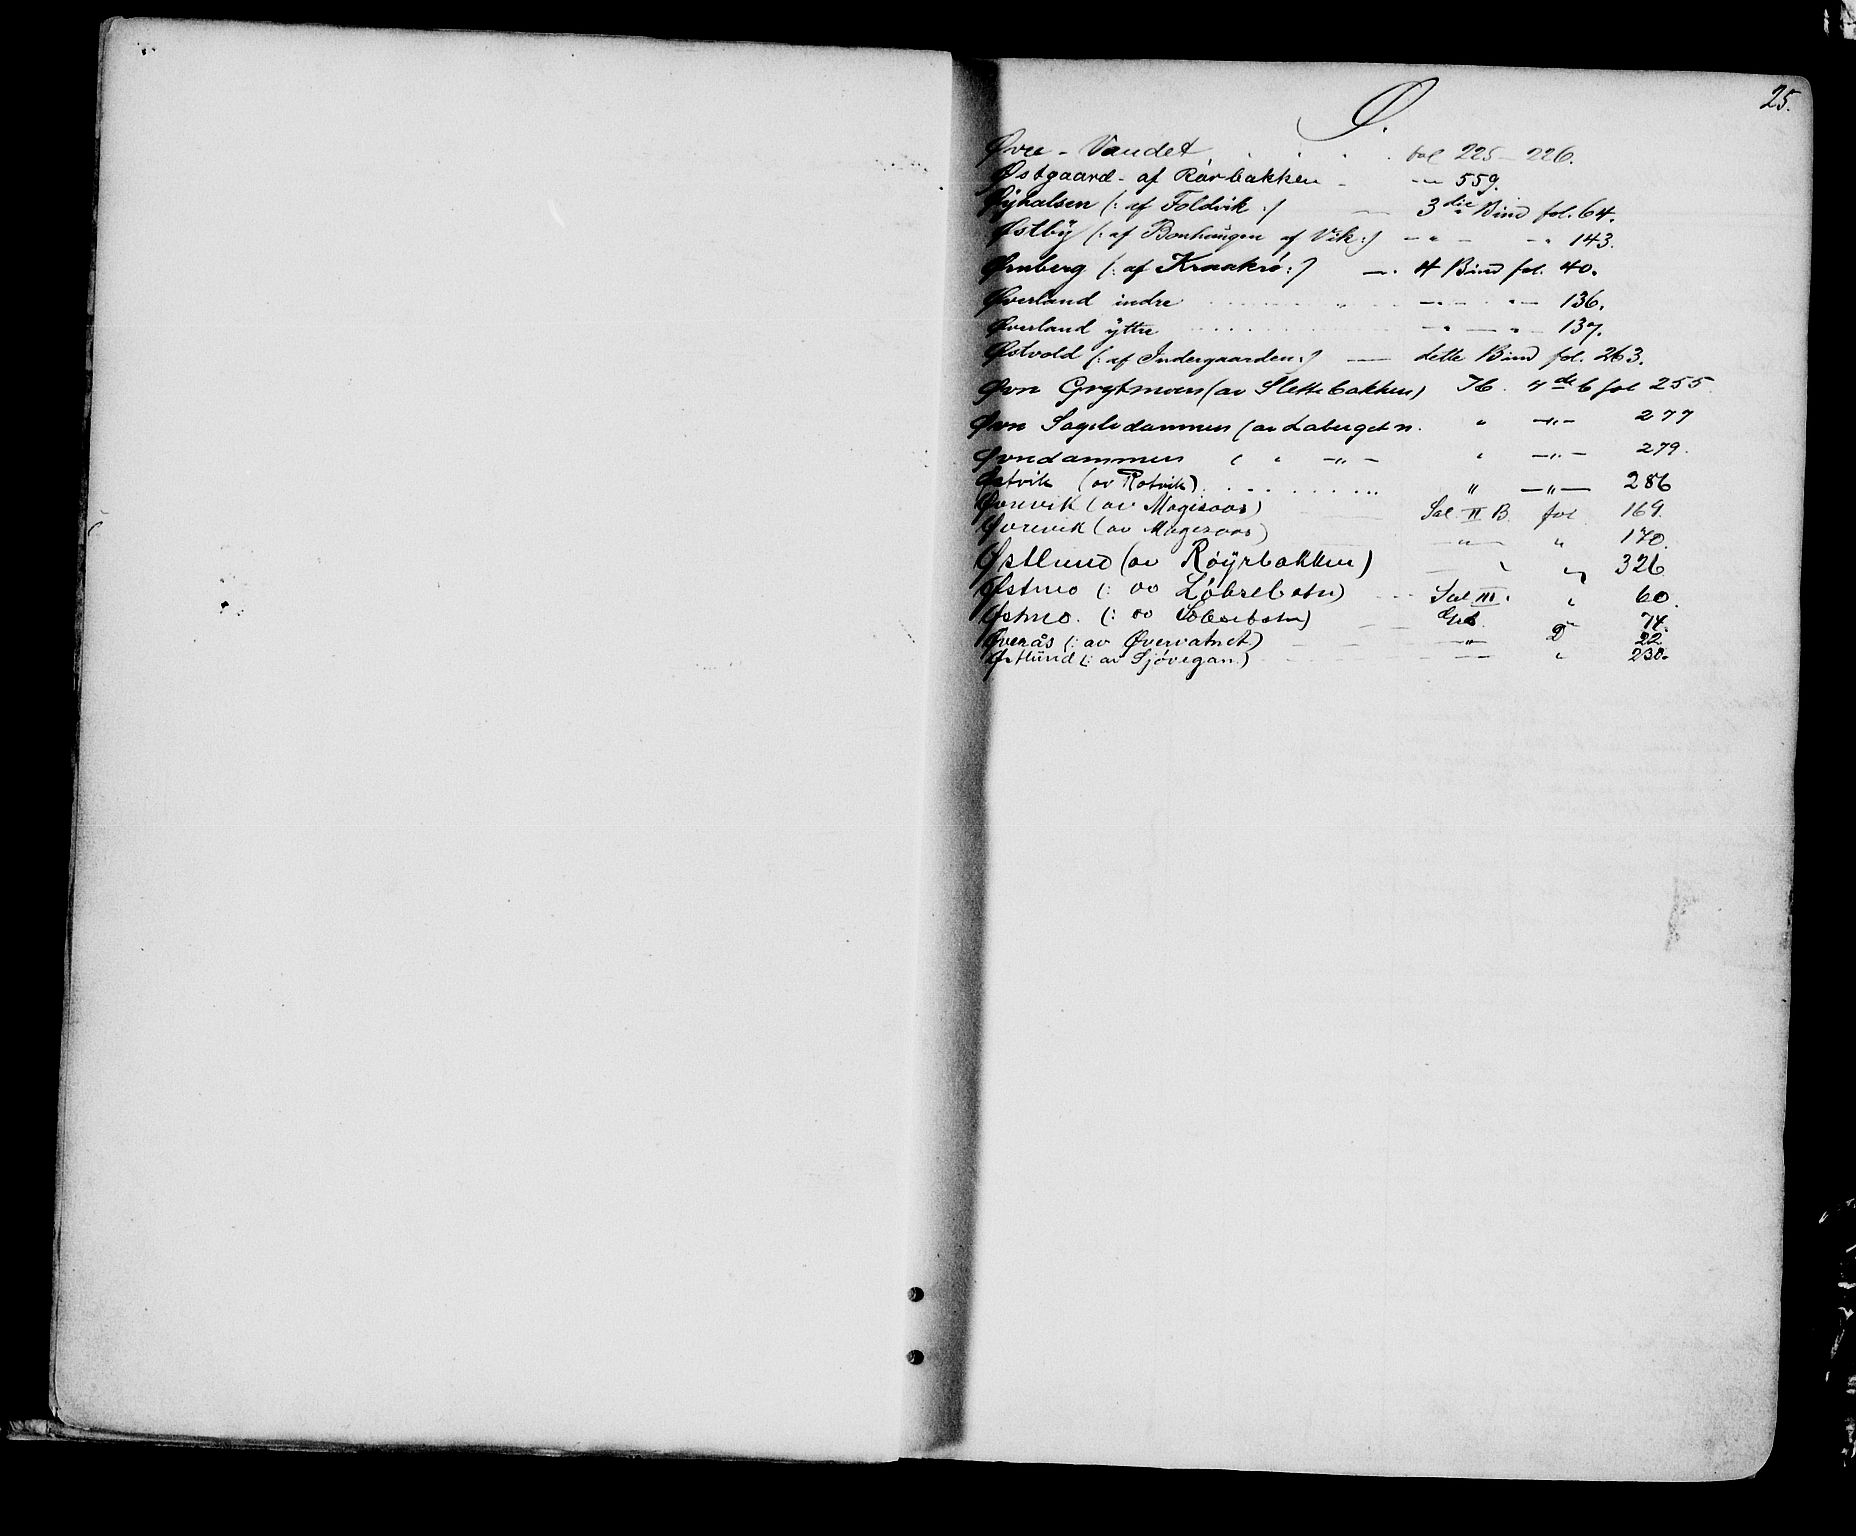 25.
Ø.
Øvre - Vandet . . . . fol 225 - 226.
Østgaard - af Rørbakken - -"- 559.
Øyhalsen (: af Foldvik :) — 3die Bind fol. 64.
Østbÿ (: af Bonhaugen af Vik :) - " - - " 143.
Ørnberg (: af Kraakrø :) —. 4 Bind fol. 40.
Øverland indre . . . . . — " — " — 136.
Øverland ÿttre . . . . . " — " — 137.
Østvold (: af Indergaarden :) — dette Bind fol. 263.
Øvre Grytmoen (av Slettebakken) Ib. 4de b fol 255
Øvre (av Laberget n. " —"— 277
Øvredammen ( " —"— " —"— 279.
Østvik (av Rotvik) . . . . . . " —"— 286
Øvrevik (av Magisaas) Sal. II B. fol 169.
Øvrevik (av Magisaas) —"— " 170.
Østlund (av Røÿrbakken) — " " 326
Østmo (: av Løbsebotn) - - - Sal III. " 60.
Østmo. (: av — — " 74.
Øverås (: av Øvervatnet) — — " 2 22.
Østlünd (: av Sjøvegan.) - - - — " 230.